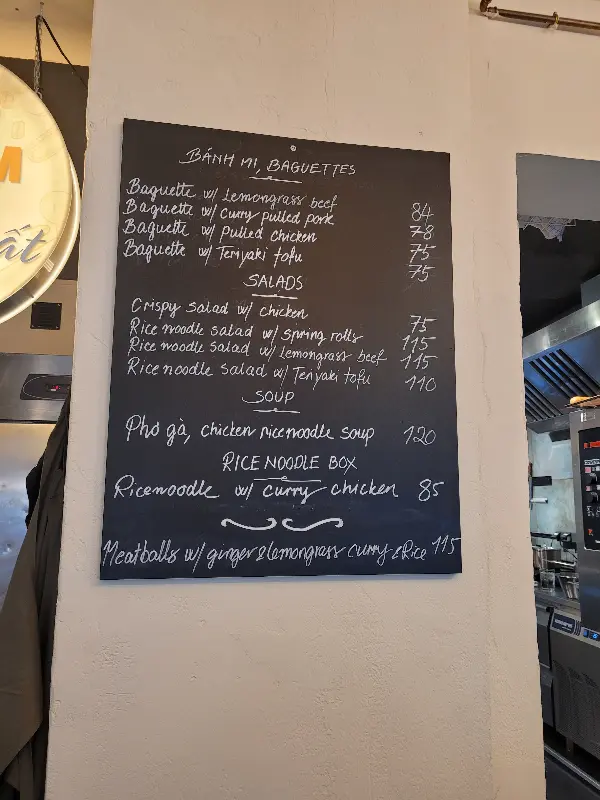 M
ất
BÁNH MI, BAGUETTES
Baguette w/ Lemongrass beef 84
Baguette w/ Curry pulled pork 78
Baguette w/ pulled chicken 75
Baguette w/ Teriyaki tofu 75
SALADS
Crispy salad w/ chicken 75
Rice noodle salad w/ spring rolls 115
Rice noodle salad w/ Lemongrass beef 115
Rice noodle salad w/ Teriyaki tofu 110
SOUP
Pho gà, chicken ricenoodle soup 120
RICE NOODLE BOX
Ricenoodle w/ curry chicken 85
Meatballs w/ ginger & lemongrass curry & Rice 115